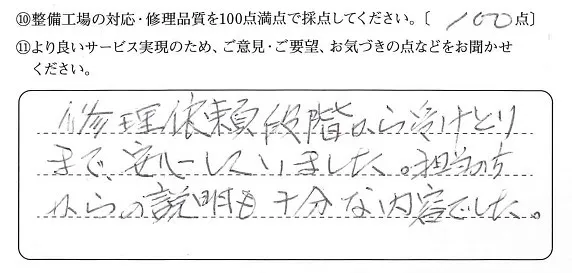 ⑩整備工場の対応・修理品質を100点満点で採点してください。〔 100 点〕
⑪より良いサービス実現のため、ご意見・ご要望、お気づきの点などをお聞かせ
ください。
修理依頼段階から受けとり
まで、安心していました。担当の方
からの説明も十分な内容でした。